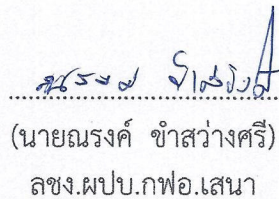 (นายณรงค์ ขำสว่างศรี)
ลชง.ผปบ.กฟอ.เสนา